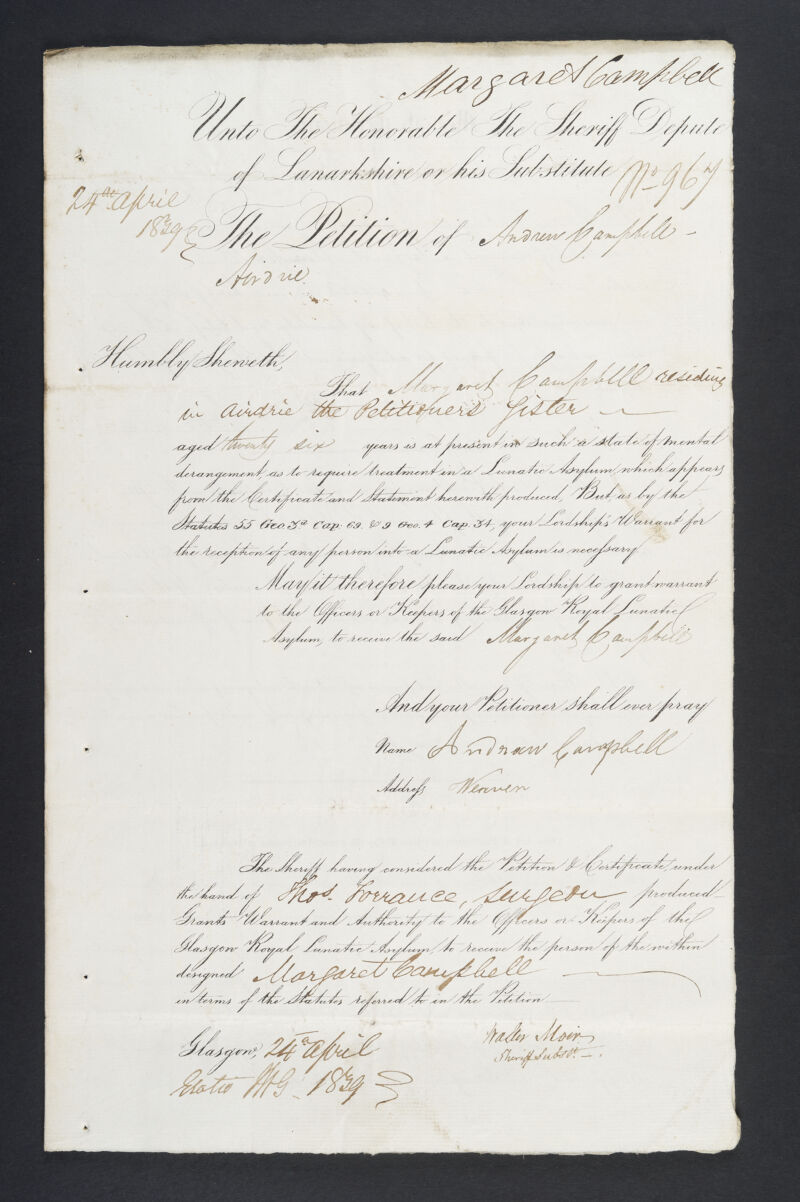 Margaret Campbell
Unto The Honorable The Sheriff Depute
of Lanarkshire or his Substitute
No 967
24th April
1839
The Petition of Andrew Campbell
Airdrie
Humbly Sheweth,
That Margaret Campbell residing
in Airdrie the Petitioners Sister
aged twenty six years is at present in such a state of mental
derangement, as to require treatment in a Lunatic Asylum, which appears
from the Certificate and Statement herewith produced. But, as by the
Statutes 55 Geo. 3d Cap. 69. & 9 Geo. 4 Cap. 34, your Lordship's Warrant for
the reception of any person into a Lunatic Asylum is necessary
May it therefore please your Lordship to grant warrant
to the Officers or Keepers of the Glasgow Royal Lunatic
Asylum, to receive the said Margaret Campbell
And your Petitioner shall ever pray
Name Andrew Campbell
Address Weaver
The Sheriff having considered the Petition & Certificate under
the hand of Thos. Torrance, Surgeon, produced
Grants Warrant and Authority to the Officers or Keepers of the
Glasgow Royal Lunatic Asylum, to receive the person of the within
designed Margaret Campbell
in terms of the Statutes referred to in the Petition
Glasgow, 24th April
1839
Walter Moir
Sheriff Subst.